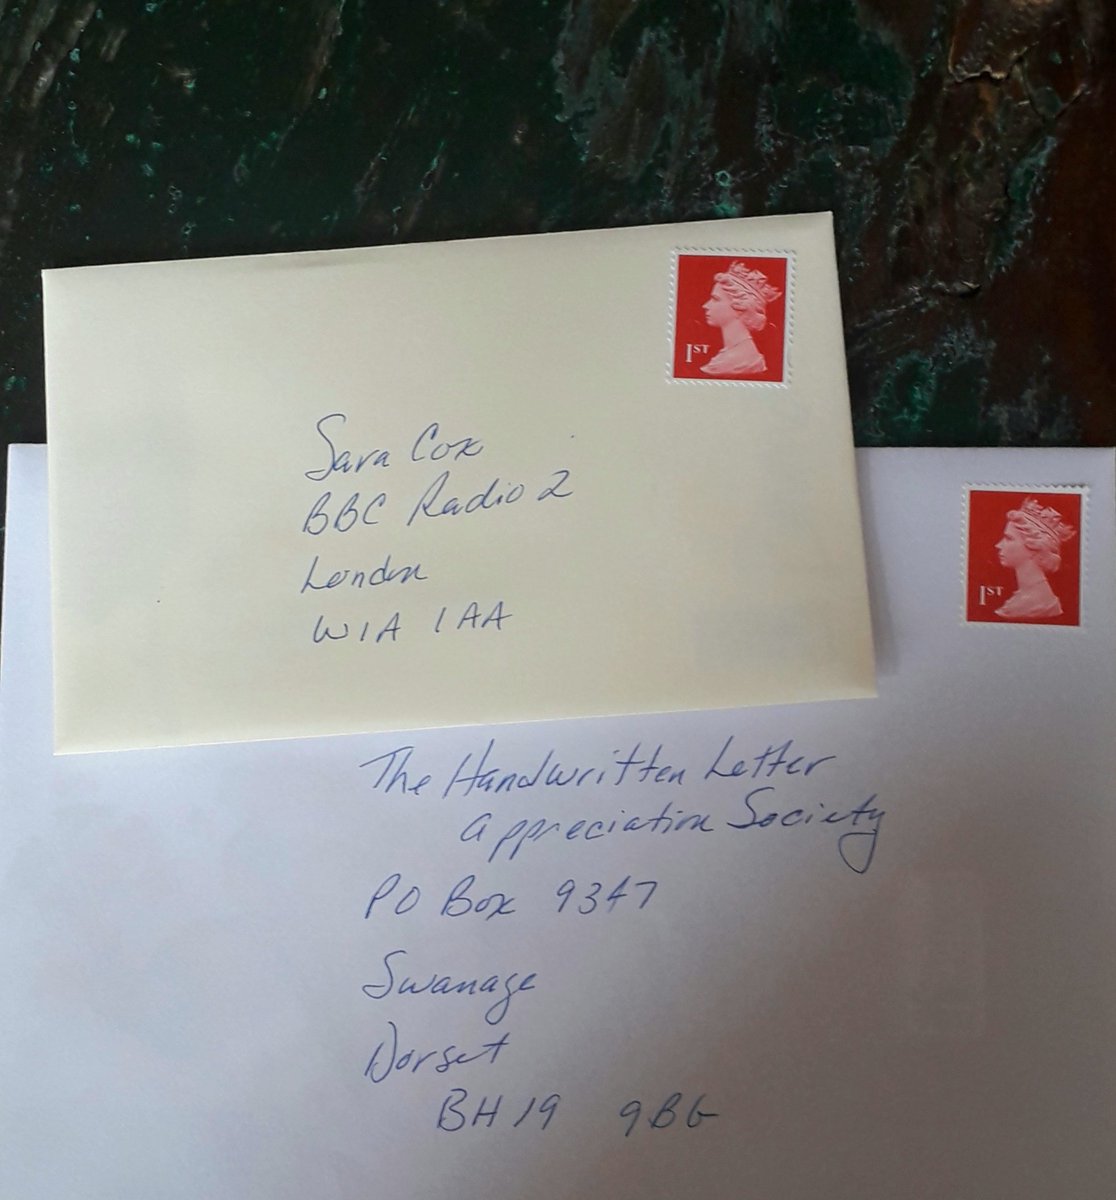 1ST
Sara Cox
BBC Radio 2
London
W1A 1AA
1ST
The Handwritten Letter
Appreciation Society
PO Box 9347
Swanage
Dorset
BH19 9BG